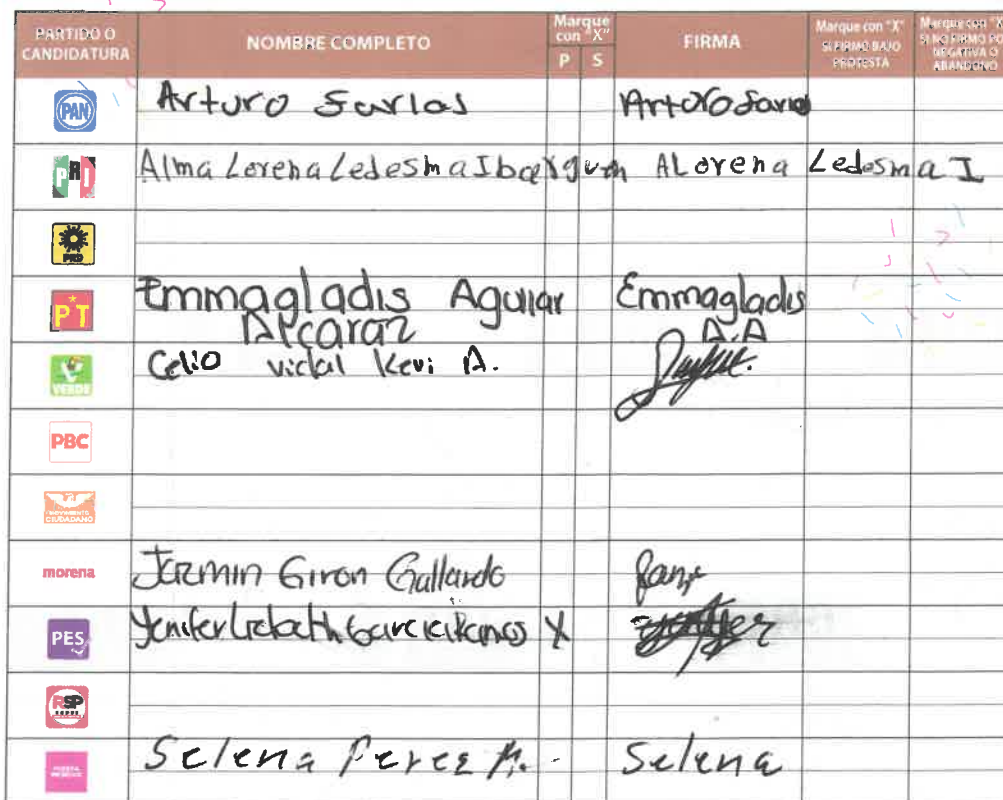 PARTIDO O CANDIDATURA NOMBRE COMPLETO Marque con "X" P S FIRMA Marque con "X" SI FIRMÓ BAJO PROTESTA Marque con "X" SI NO FIRMÓ POR NEGATIVA O ABANDONO
PAN Arturo Sarlas
PRI Alma Lorena Ledesma Ibarguen ALorena Ledesma I
PRD
PT Emmagladis Aguilar Alcaraz Emmagladis A.A
VERDE Celio vidal Kevi A.
PBC
MOVIMIENTO CIUDADANO
morena Jazmin Giron Gallardo
PES Yenifer Garcia Ramos X
RSP
Selena Perez Selena